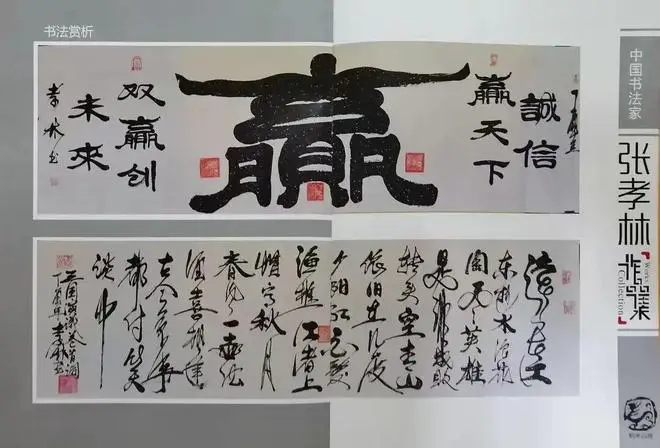 书法赏析
誠信
贏天下
贏
双贏创
未來
孝林书
滚滚长江
东逝水浪花
淘尽英雄
是非成败
转头空青山
依旧在几度
夕阳红白发
渔樵江渚上
惯看秋月
春风一壶浊
酒喜相逢
古今多少事
都付笑
谈中
三国演义卷首词
孝林书
中国书法家
张孝林
作品集
Works
Collection